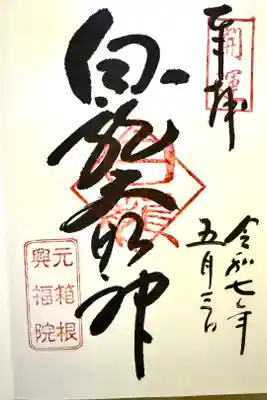 奉拝
開運
白龍大明神
令和七年
五月三日
元箱根
興福院